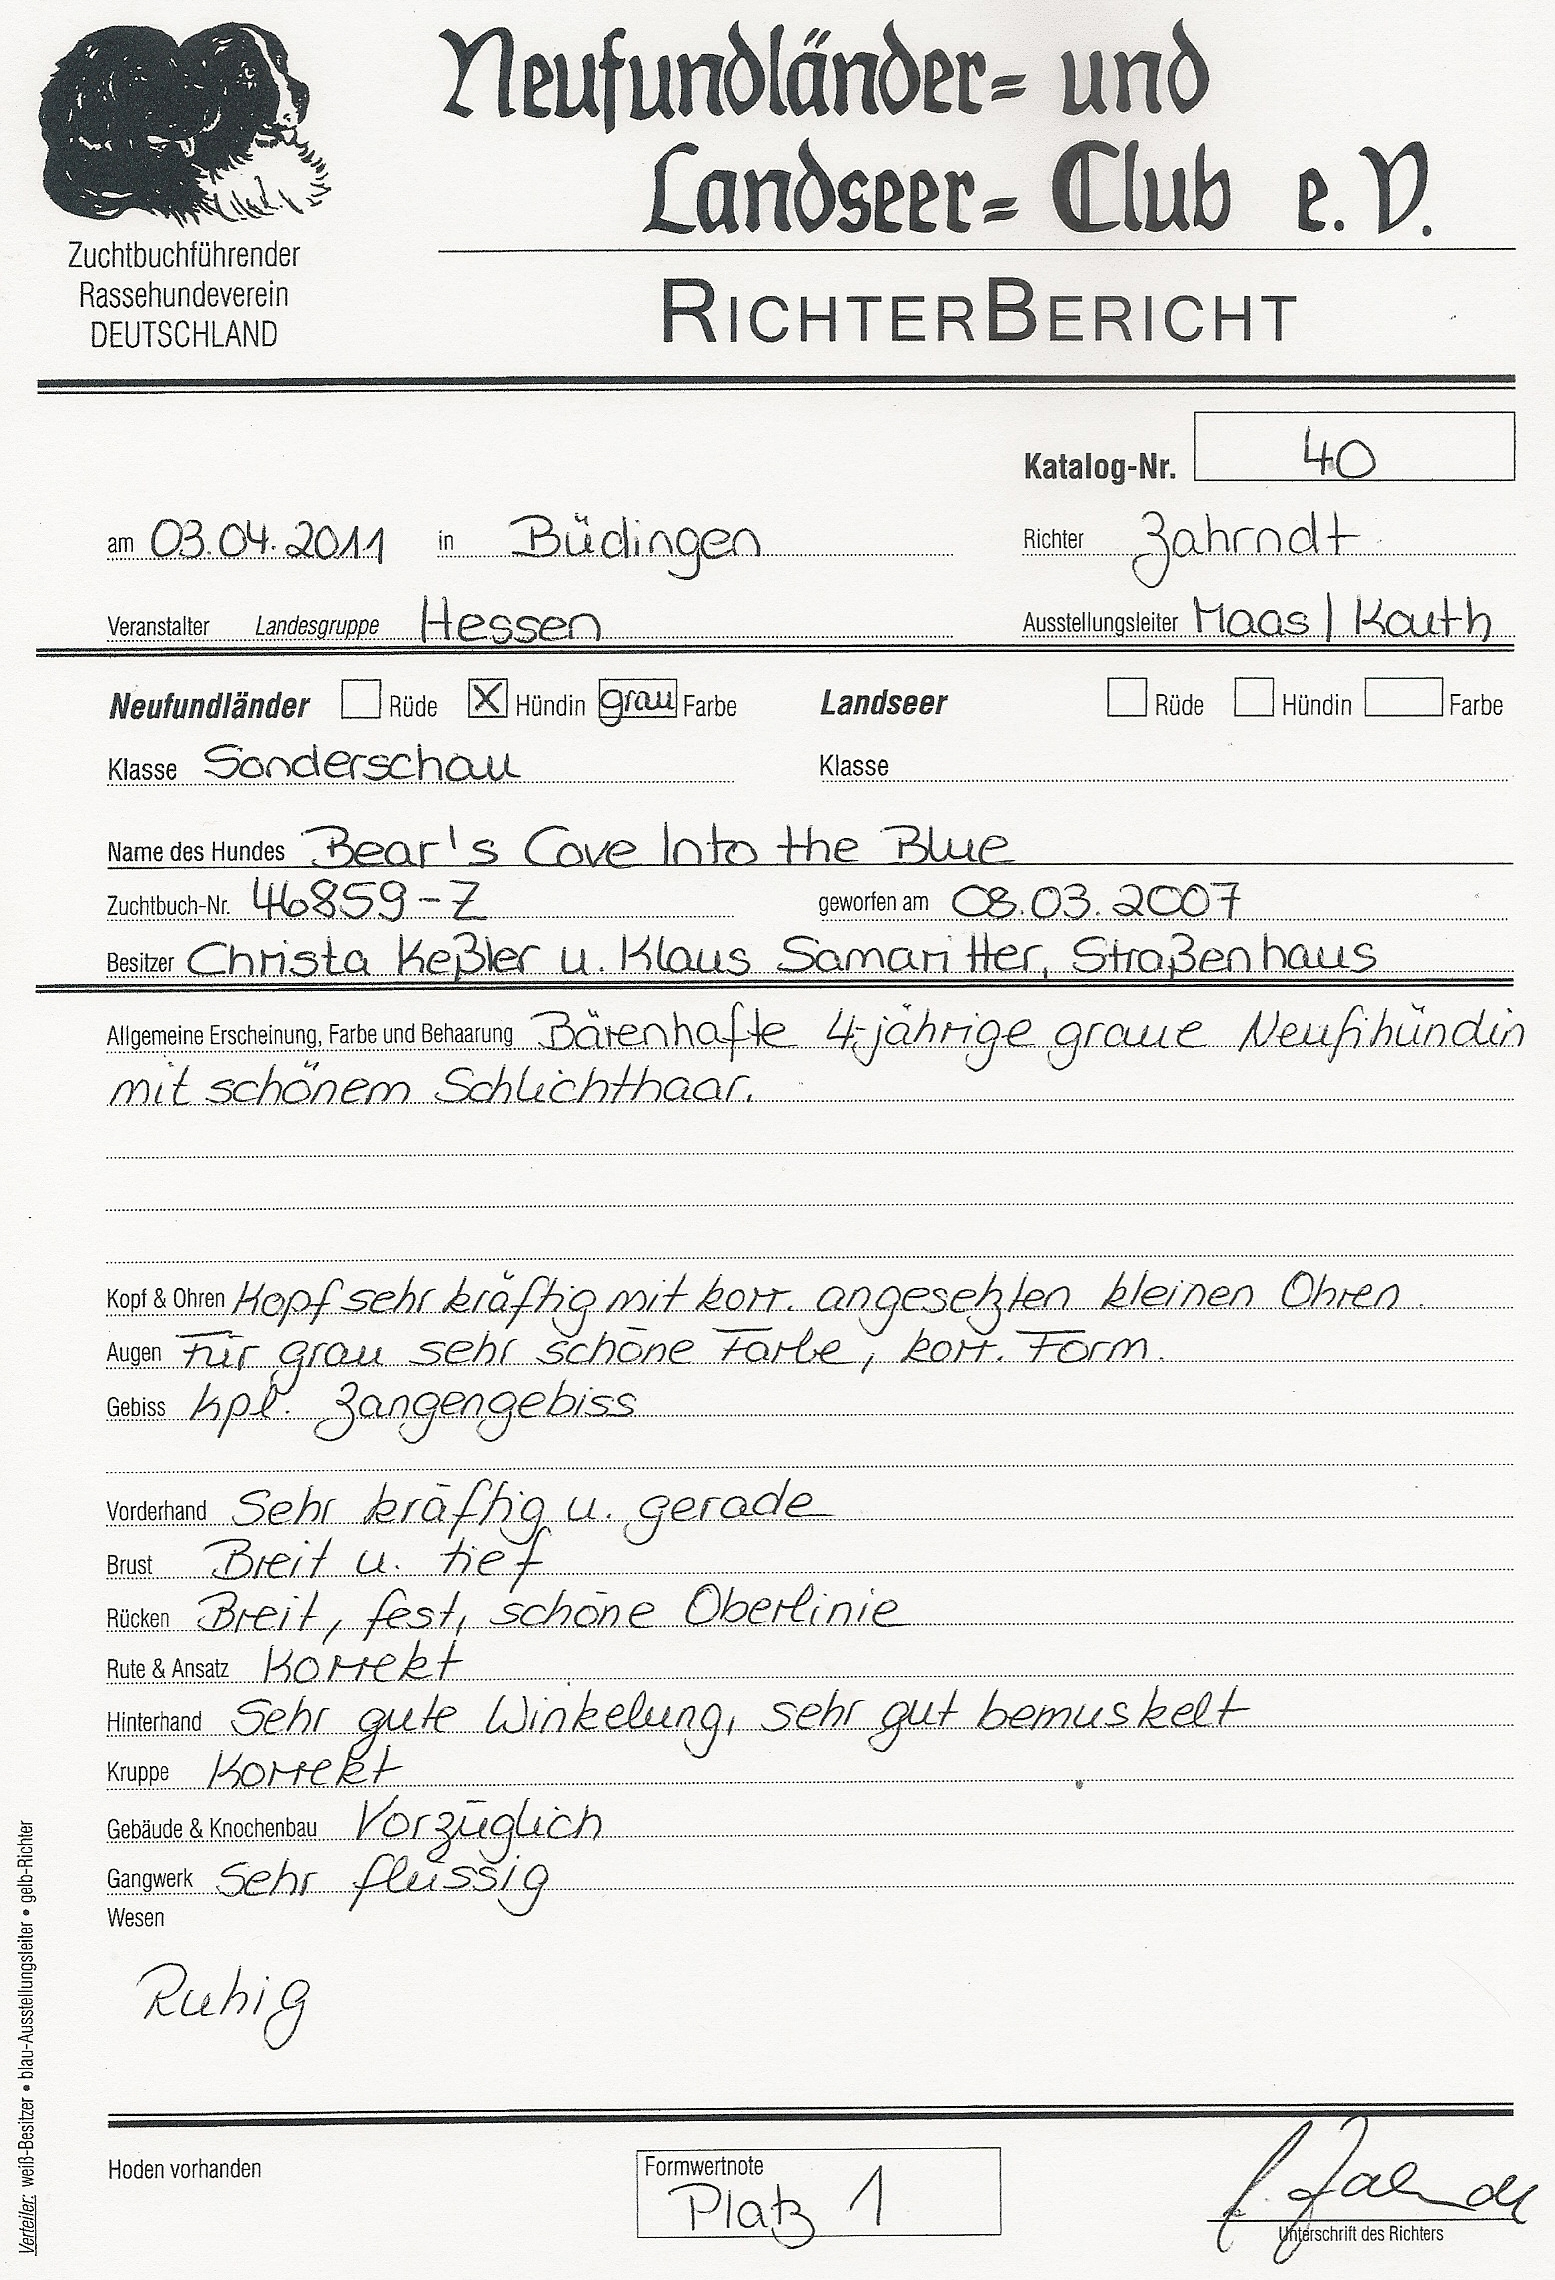 Neufundländer= und
Landseer= Club e.V.
Zuchtbuchführender
Rassehundeverein
DEUTSCHLAND
RICHTERBERICHT
Katalog-Nr. 40
am 03.04.2011 in Büdingen Richter Zahrndt
Veranstalter Landesgruppe Hessen Ausstellungsleiter Maas / Kauth
Neufundländer Rüde X Hündin grau Farbe Landseer Rüde Hündin Farbe
Klasse Sonderschau Klasse
Name des Hundes Bear's Cove Into the Blue
Zuchtbuch-Nr. 46859-Z geworfen am 08.03.2007
Besitzer Christa Keßler u. Klaus Samaritter, Straßenhaus
Allgemeine Erscheinung, Farbe und Behaarung Bärenhafte 4-jährige graue Neufihündin
mit schönem Schlichthaar.
Kopf & Ohren Kopf sehr kräftig mit korr. angesetzten kleinen Ohren.
Augen Für grau sehr schöne Farbe, korr. Form.
Gebiss kpl. Zangengebiss
Vorderhand Sehr kräftig u. gerade
Brust Breit u. tief
Rücken Breit, fest, schöne Oberlinie
Rute & Ansatz Korrekt
Hinterhand Sehr gute Winkelung, sehr gut bemuskelt
Kruppe Korrekt
Gebäude & Knochenbau Vorzüglich
Gangwerk Sehr flüssig
Wesen
Ruhig
Hoden vorhanden
Formwertnote
Platz 1
Unterschrift des Richters
Verteiler: weiß-Besitzer • blau-Ausstellungsleiter • gelb-Richter